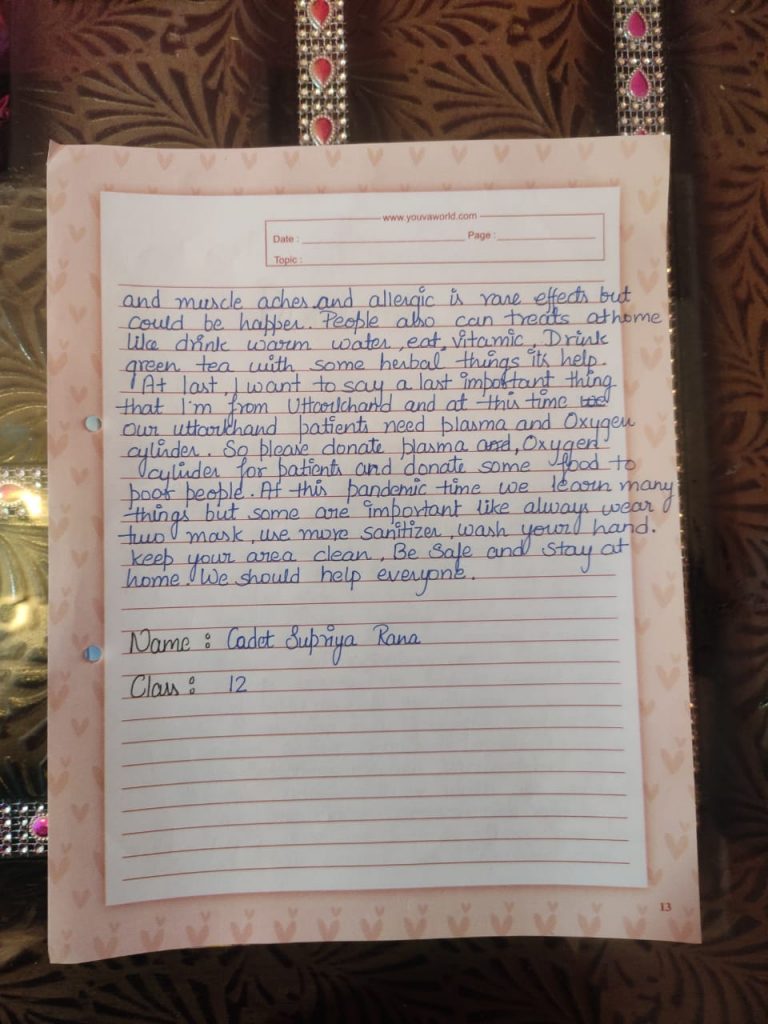 www.youvaworld.com
Date : Page :
Topic :
and muscle aches and allergic is rare effects but
could be happer. People also can treats athome
like drink warm water, eat, vitamic, Drink
green tea with some herbal things its help.
At last, I want to say a last important thing
that I'm from Uttarkhand and at this time
our uttarkhand patients need plasma and Oxygen
cylinder. So please donate plasma and, Oxygen
cylinder for patients and donate some food to
poor people. At this pandemic time we learn many
things but some are important like always wear
two mask, use more sanitizer, wash your hand.
keep your area clean, Be Safe and stay at
home. We should help everyone.
Name : Cadet Supriya Rana
Class : 12
13